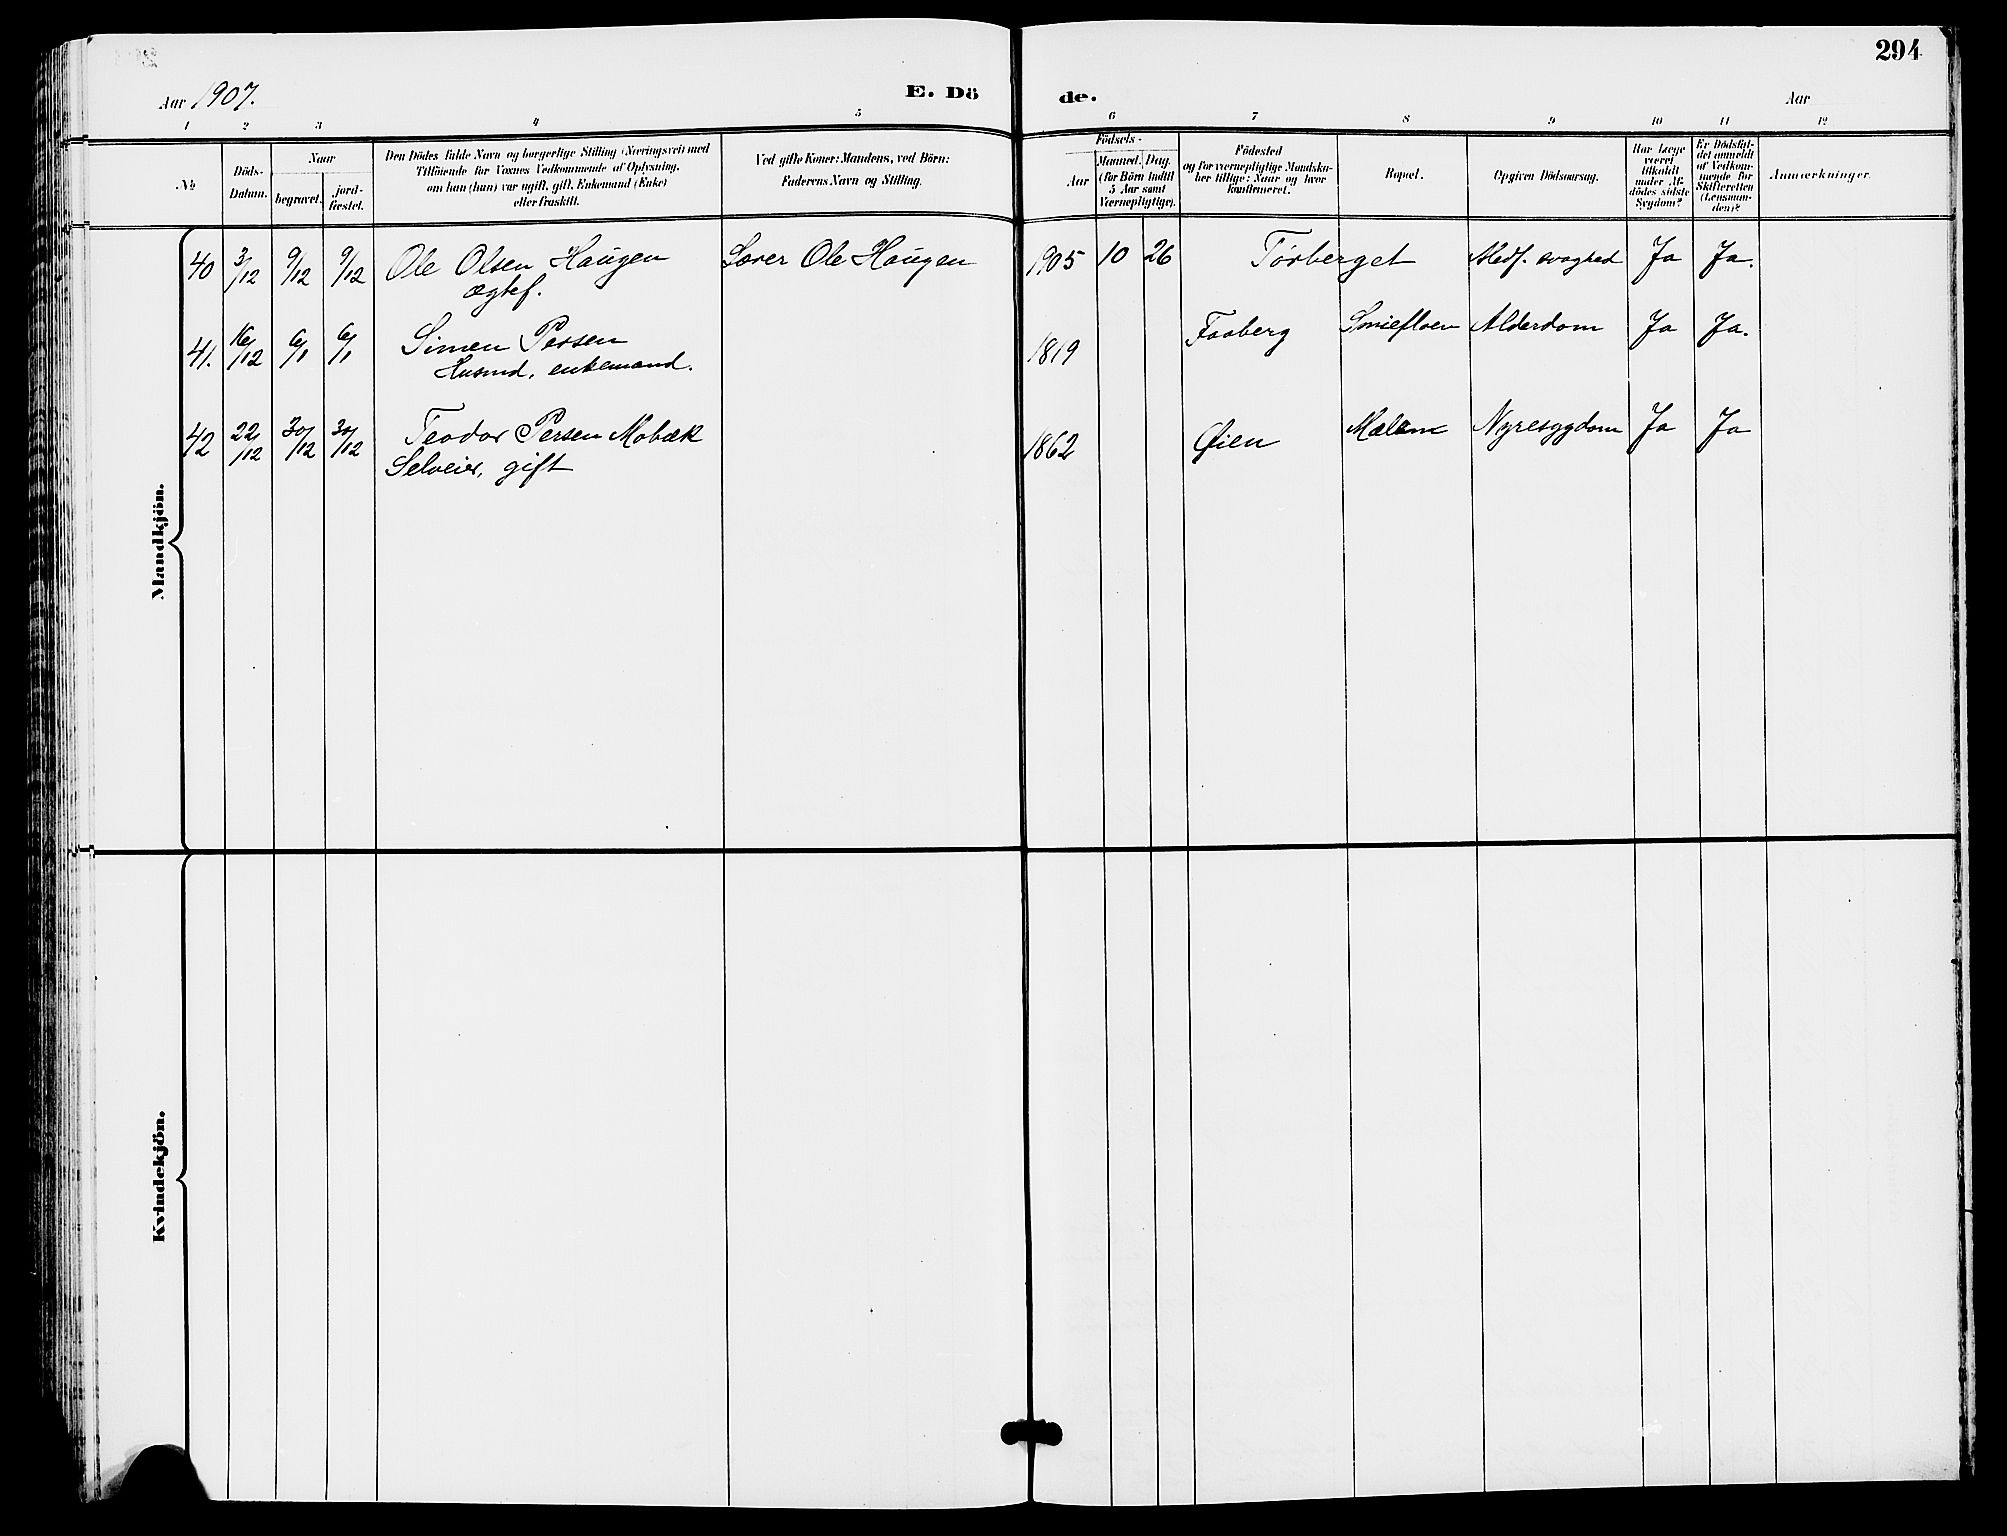 294
Aar 1907.
E. Dö
de.
Aar
1 2 3 4 5 6 7 8 9 10 11 12
№
Döds-Datum.
Naar
begravet.
jord-fæstet.
Den Dödes fulde Navn og borgerlige Stilling (Næringsvei) med
Tilföiende for Voxnes Vedkommende af Oplysning,
om han (hun) var ugift, gift, Enkemand (Enke)
eller fraskilt.
Ved gifte Koner: Mandens, ved Börn:
Faderens Navn og Stilling.
Födsels-
Aar
Maaned. Dag.
(for Börn indtil
5 Aar samt
Værnepligtige).
Födested
og for værnepligtige Mandskaber tillige: Naar og hvor
konfirmeret.
Bopæl.
Opgiven Dödsaarsag.
Har Læge
været
tilkaldt
under Afdödes sidste
Sygdom?
Er Dödsfaldet anmeldt
af Vedkommende for
Skifteretten
(Lensmanden)?
Anmærkninger.
Mandkjön.
40 3/12 9/12 9/12 Ole Olsen Haugen Lærer Ole Haugen 1905 10 26 Tørberget Medf. svaghed Ja Ja.
ægtef.
41. 16/12 6/1 6/1 Simen Persen 1819 Faaberg Smiefloen Alderdom Ja Ja.
Husmd, enkemand.
42 22/12 30/12 30/12 Teodor Persen Mobæk 1862 Øien Nyresygdom Ja Ja
Selveier, gift
Kvindekjön.